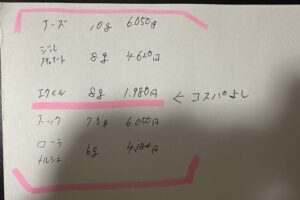 ナーズ 10g 6.050円
ジル
スチュアート 8g 4.620円
エクセル 8g 1.980円 ← コスパよし
スック 7.3g 6.050円
ローラ
メルシエ 6g 4.180円